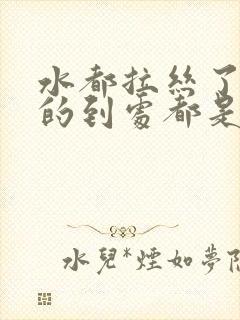 水都拉絲了
的到處都是
水兒*煙如夢隱